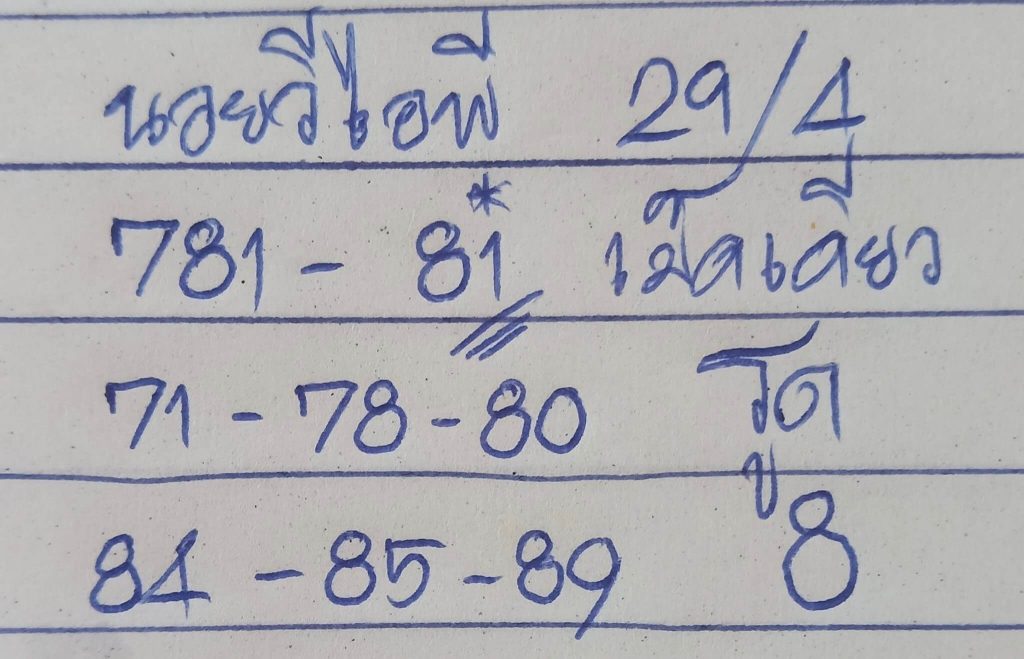 นอยวีไอพี 29/4
781 - 81* เม็ดเดียว
71 - 78 - 80 รูด
84 - 85 - 89 8